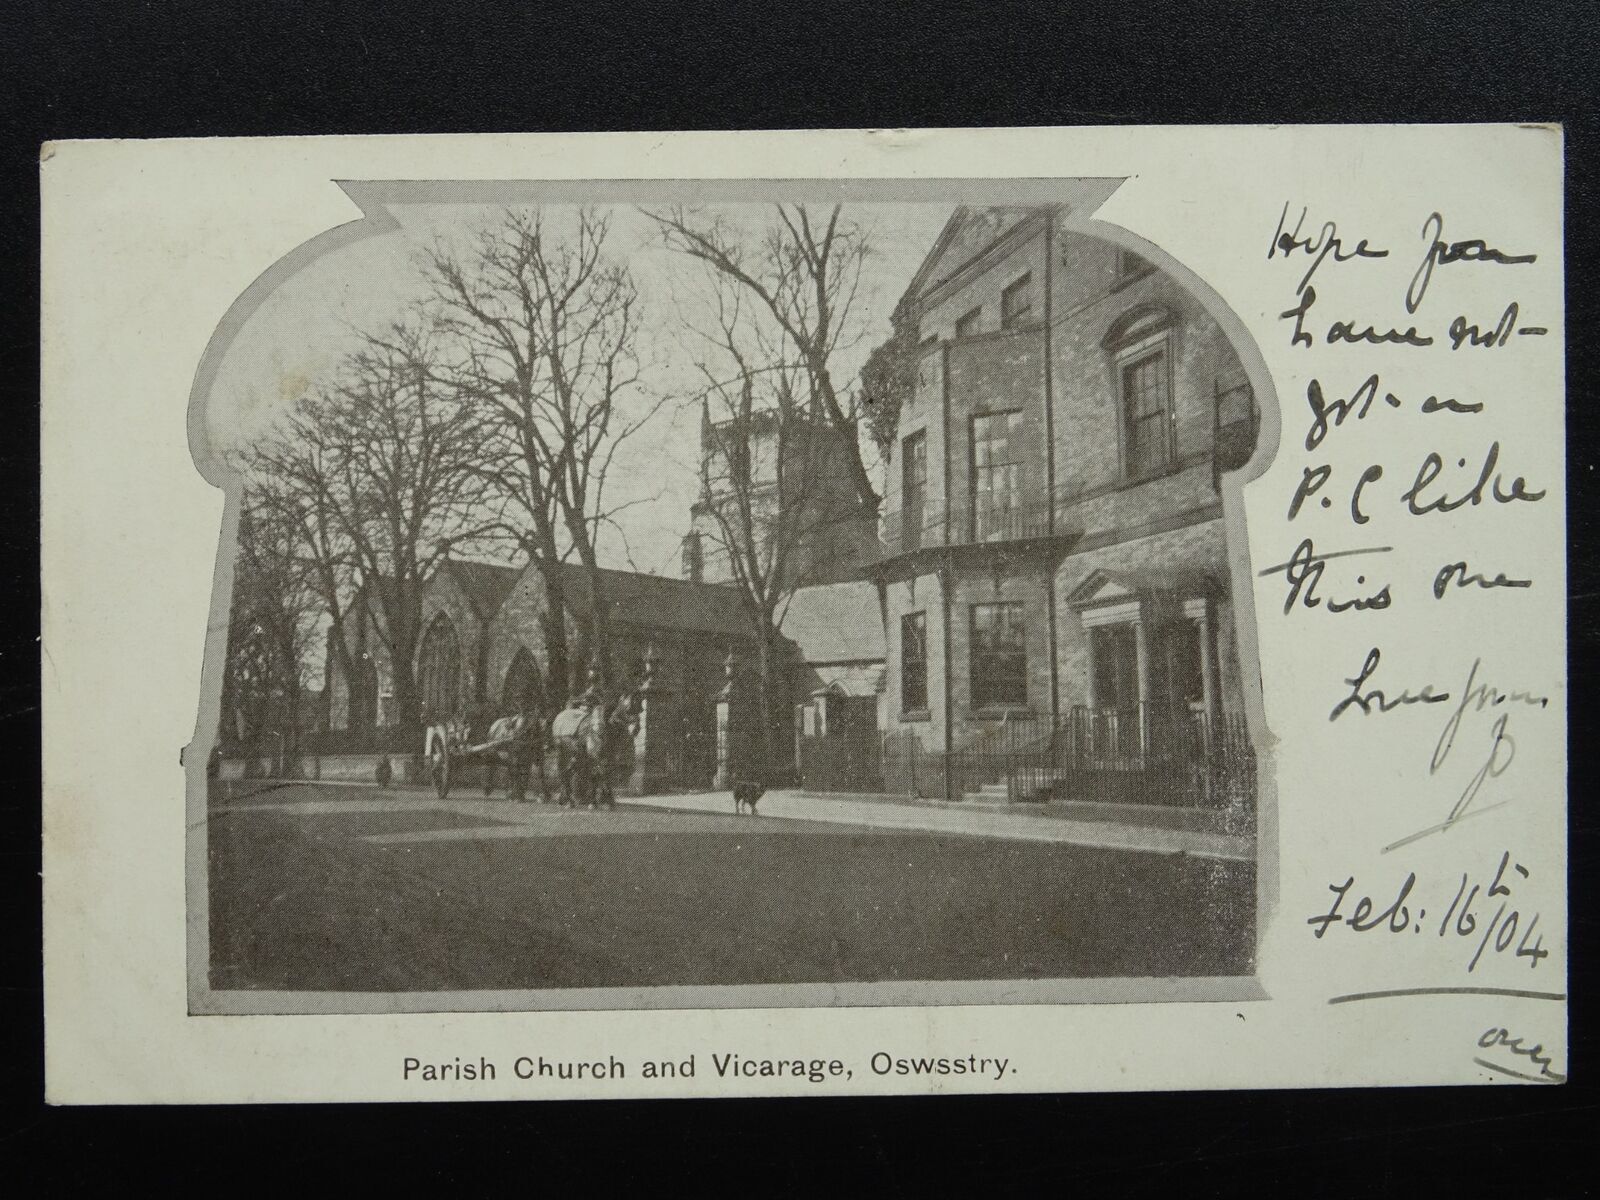 Hope you
have not
got a
P.C like
this one
Love from
J
Feb: 16th/04
over
Parish Church and Vicarage, Oswsstry.